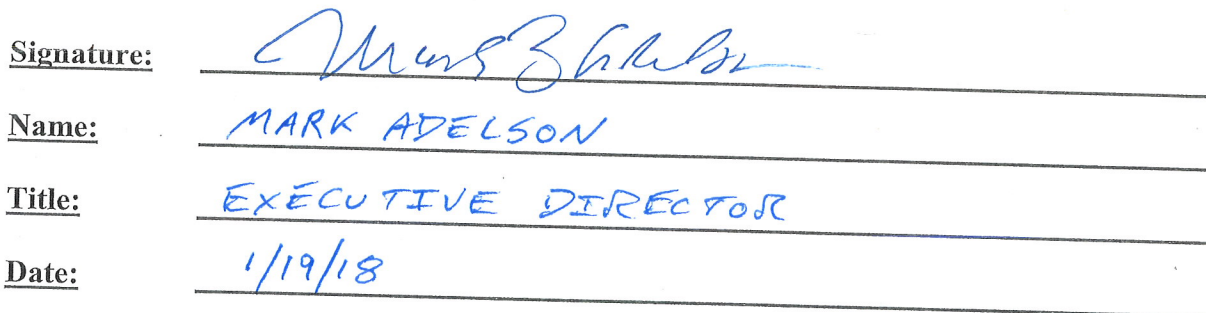 Signature:
Name: MARK ADELSON
Title: EXECUTIVE DIRECTOR
Date: 1/19/18